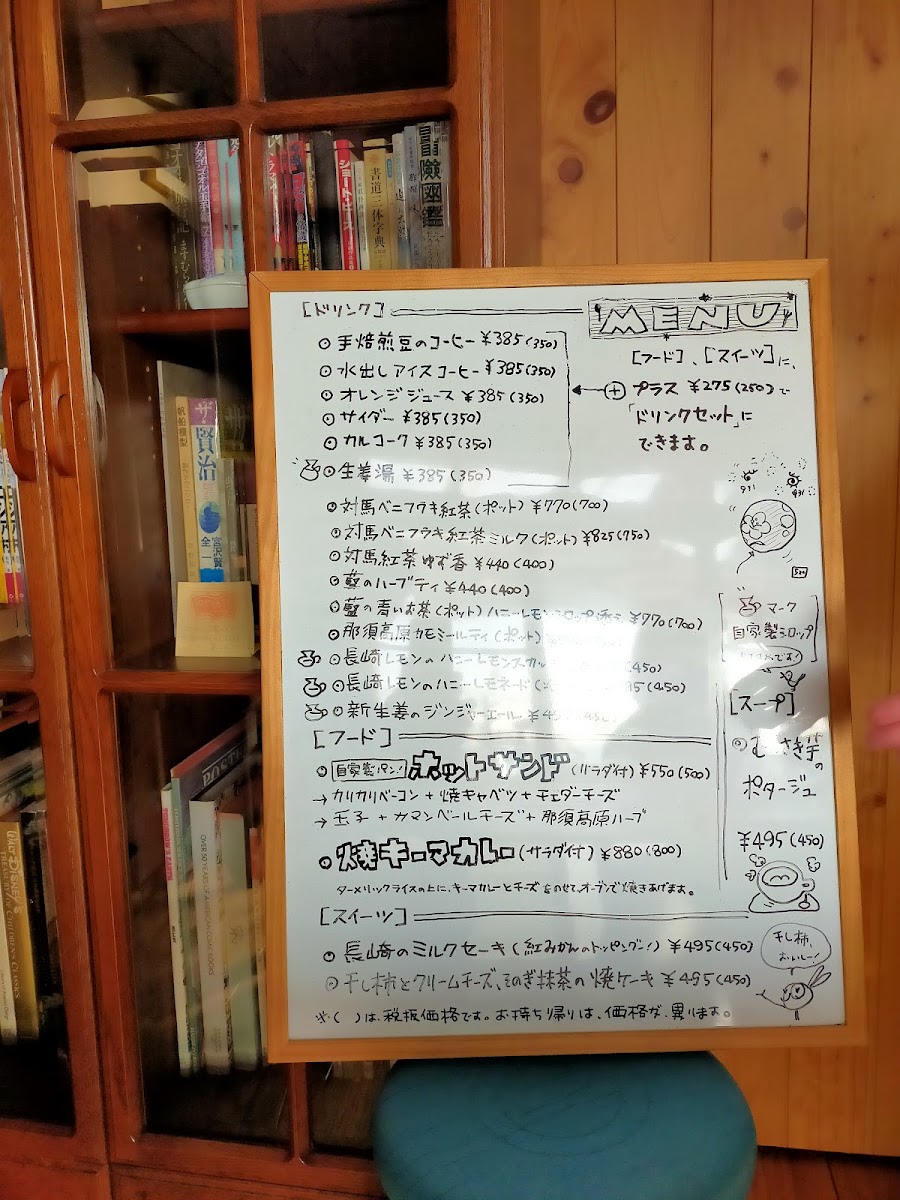 [ドリンク]
MENU
手焙煎豆のコーヒー ¥385(350)
水出しアイスコーヒー ¥385(350)
オレンジジュース ¥385(350)
サイダー ¥385(350)
カルコーク ¥385(350)
生姜湯 ¥385(350)
[フード]、[スイーツ]に、
⊕プラス ¥275(250)で
「ドリンクセット」に
できます。
対馬ベニフウキ紅茶(ポット) ¥770(700)
対馬ベニフウキ紅茶ミルク(ポット) ¥825(750)
対馬紅茶ゆず香 ¥440(400)
藍のハーブティ ¥440(400)
藍の青いお茶(ポット)ハニーレモンシロップ添え ¥770(700)
那須高原カモミールティ(ポット)
長崎レモンのハニーレモンスカッシュ 450)
長崎レモンのハニーレモネード (450)
新生姜のジンジャーエール
マーク
自家製シロップ
[スープ]
むらさき芋の
ポタージュ
¥495(450)
[フード]
自家製パン! ホットサンド(サラダ付) ¥550(500)
→カリカリベーコン+焼キャベツ+チェダーチーズ
→玉子+カマンベールチーズ+那須高原ハーブ
焼キーマカレー(サラダ付) ¥880(800)
ターメリックライスの上に、キーマカレーとチーズをのせて、オーブンで焼きあげます。
[スイーツ]
長崎のミルクセーキ(紅みかんのトッピング!) ¥495(450)
干し柿とクリームチーズ、そのぎ抹茶の焼ケーキ ¥495(450)
干し柿、
おいしー!
※( )は、税抜価格です。お持ち帰りは、価格が、異ります。
冒険図鑑
書道三体字典
ショート・
ザ・賢治
宮沢賢
全一
帆船模型
WALT DISNEY'S
OVER 50 YEARS OF AMERICAN COMIC BOOKS